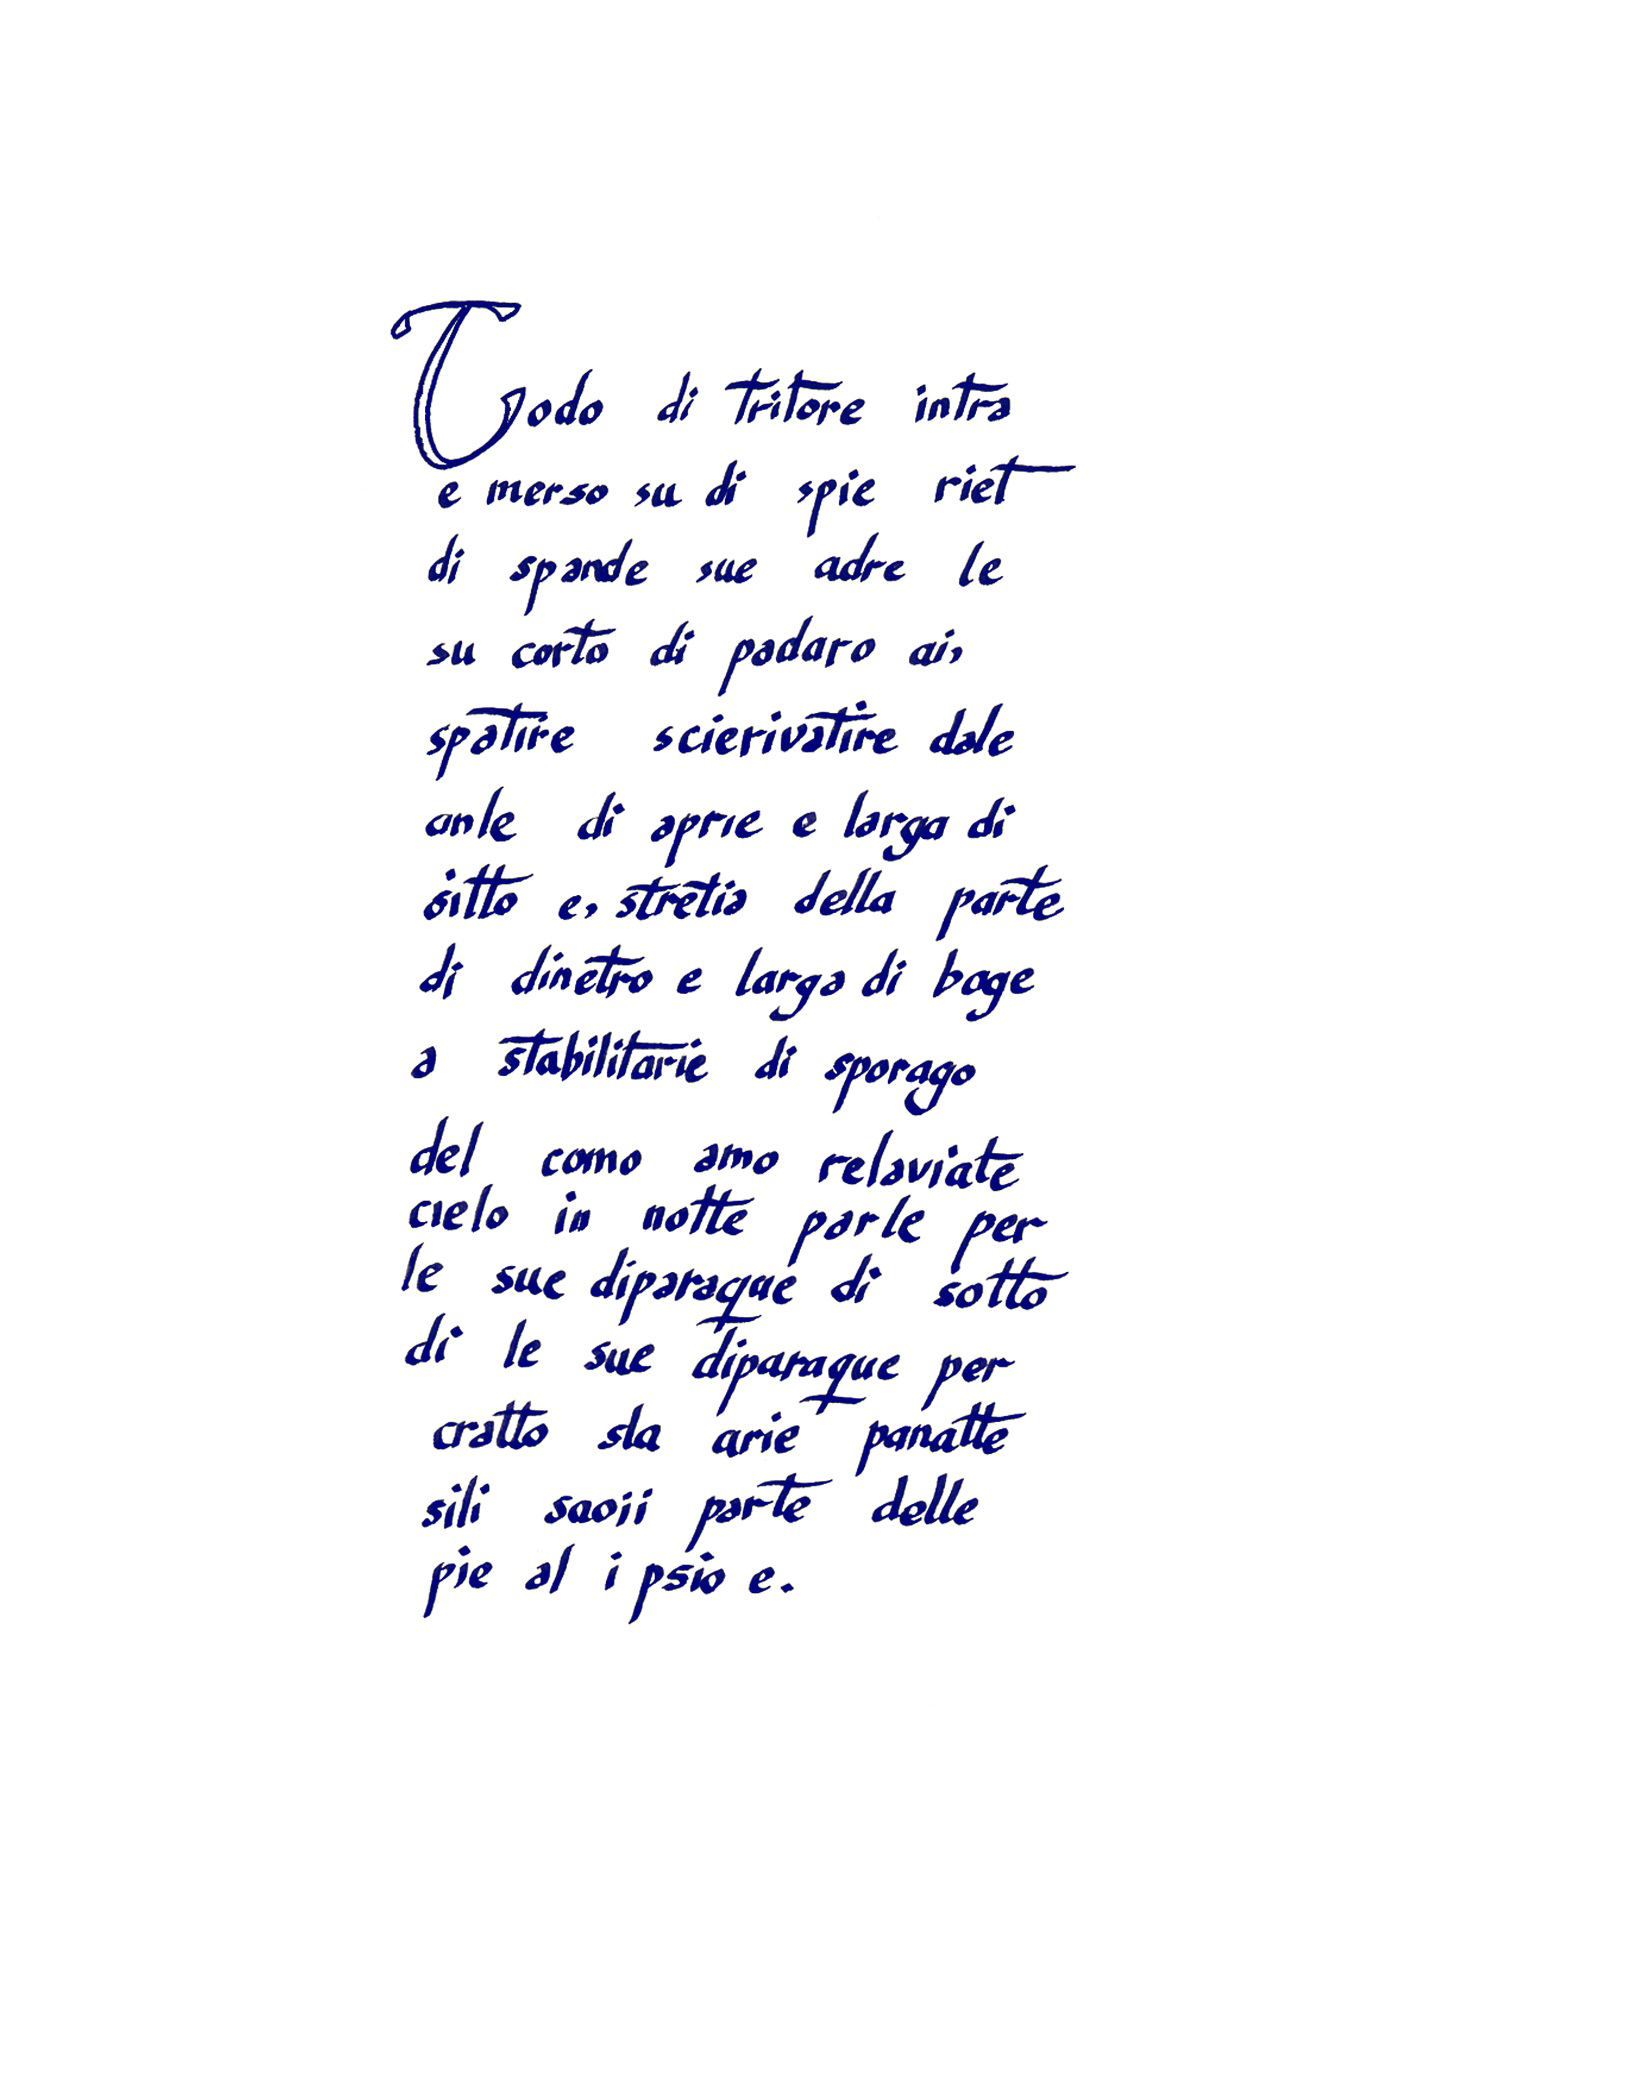 Todo di tritore intra
e merso su di spie riet
di spande sue adre le
su corto di padaro ai,
spatire scierivatire dale
anle di aprie e larga di
sitto e, stretia della parte
di dinetro e larga di boge
a stabilitarie di sporago
del como amo relaviate
cielo in notte parle per
le sue diparaque di sotto
di le sue diparaque per
cratto sla arie panatte
sili saoii parte delle
pie al i psio e.